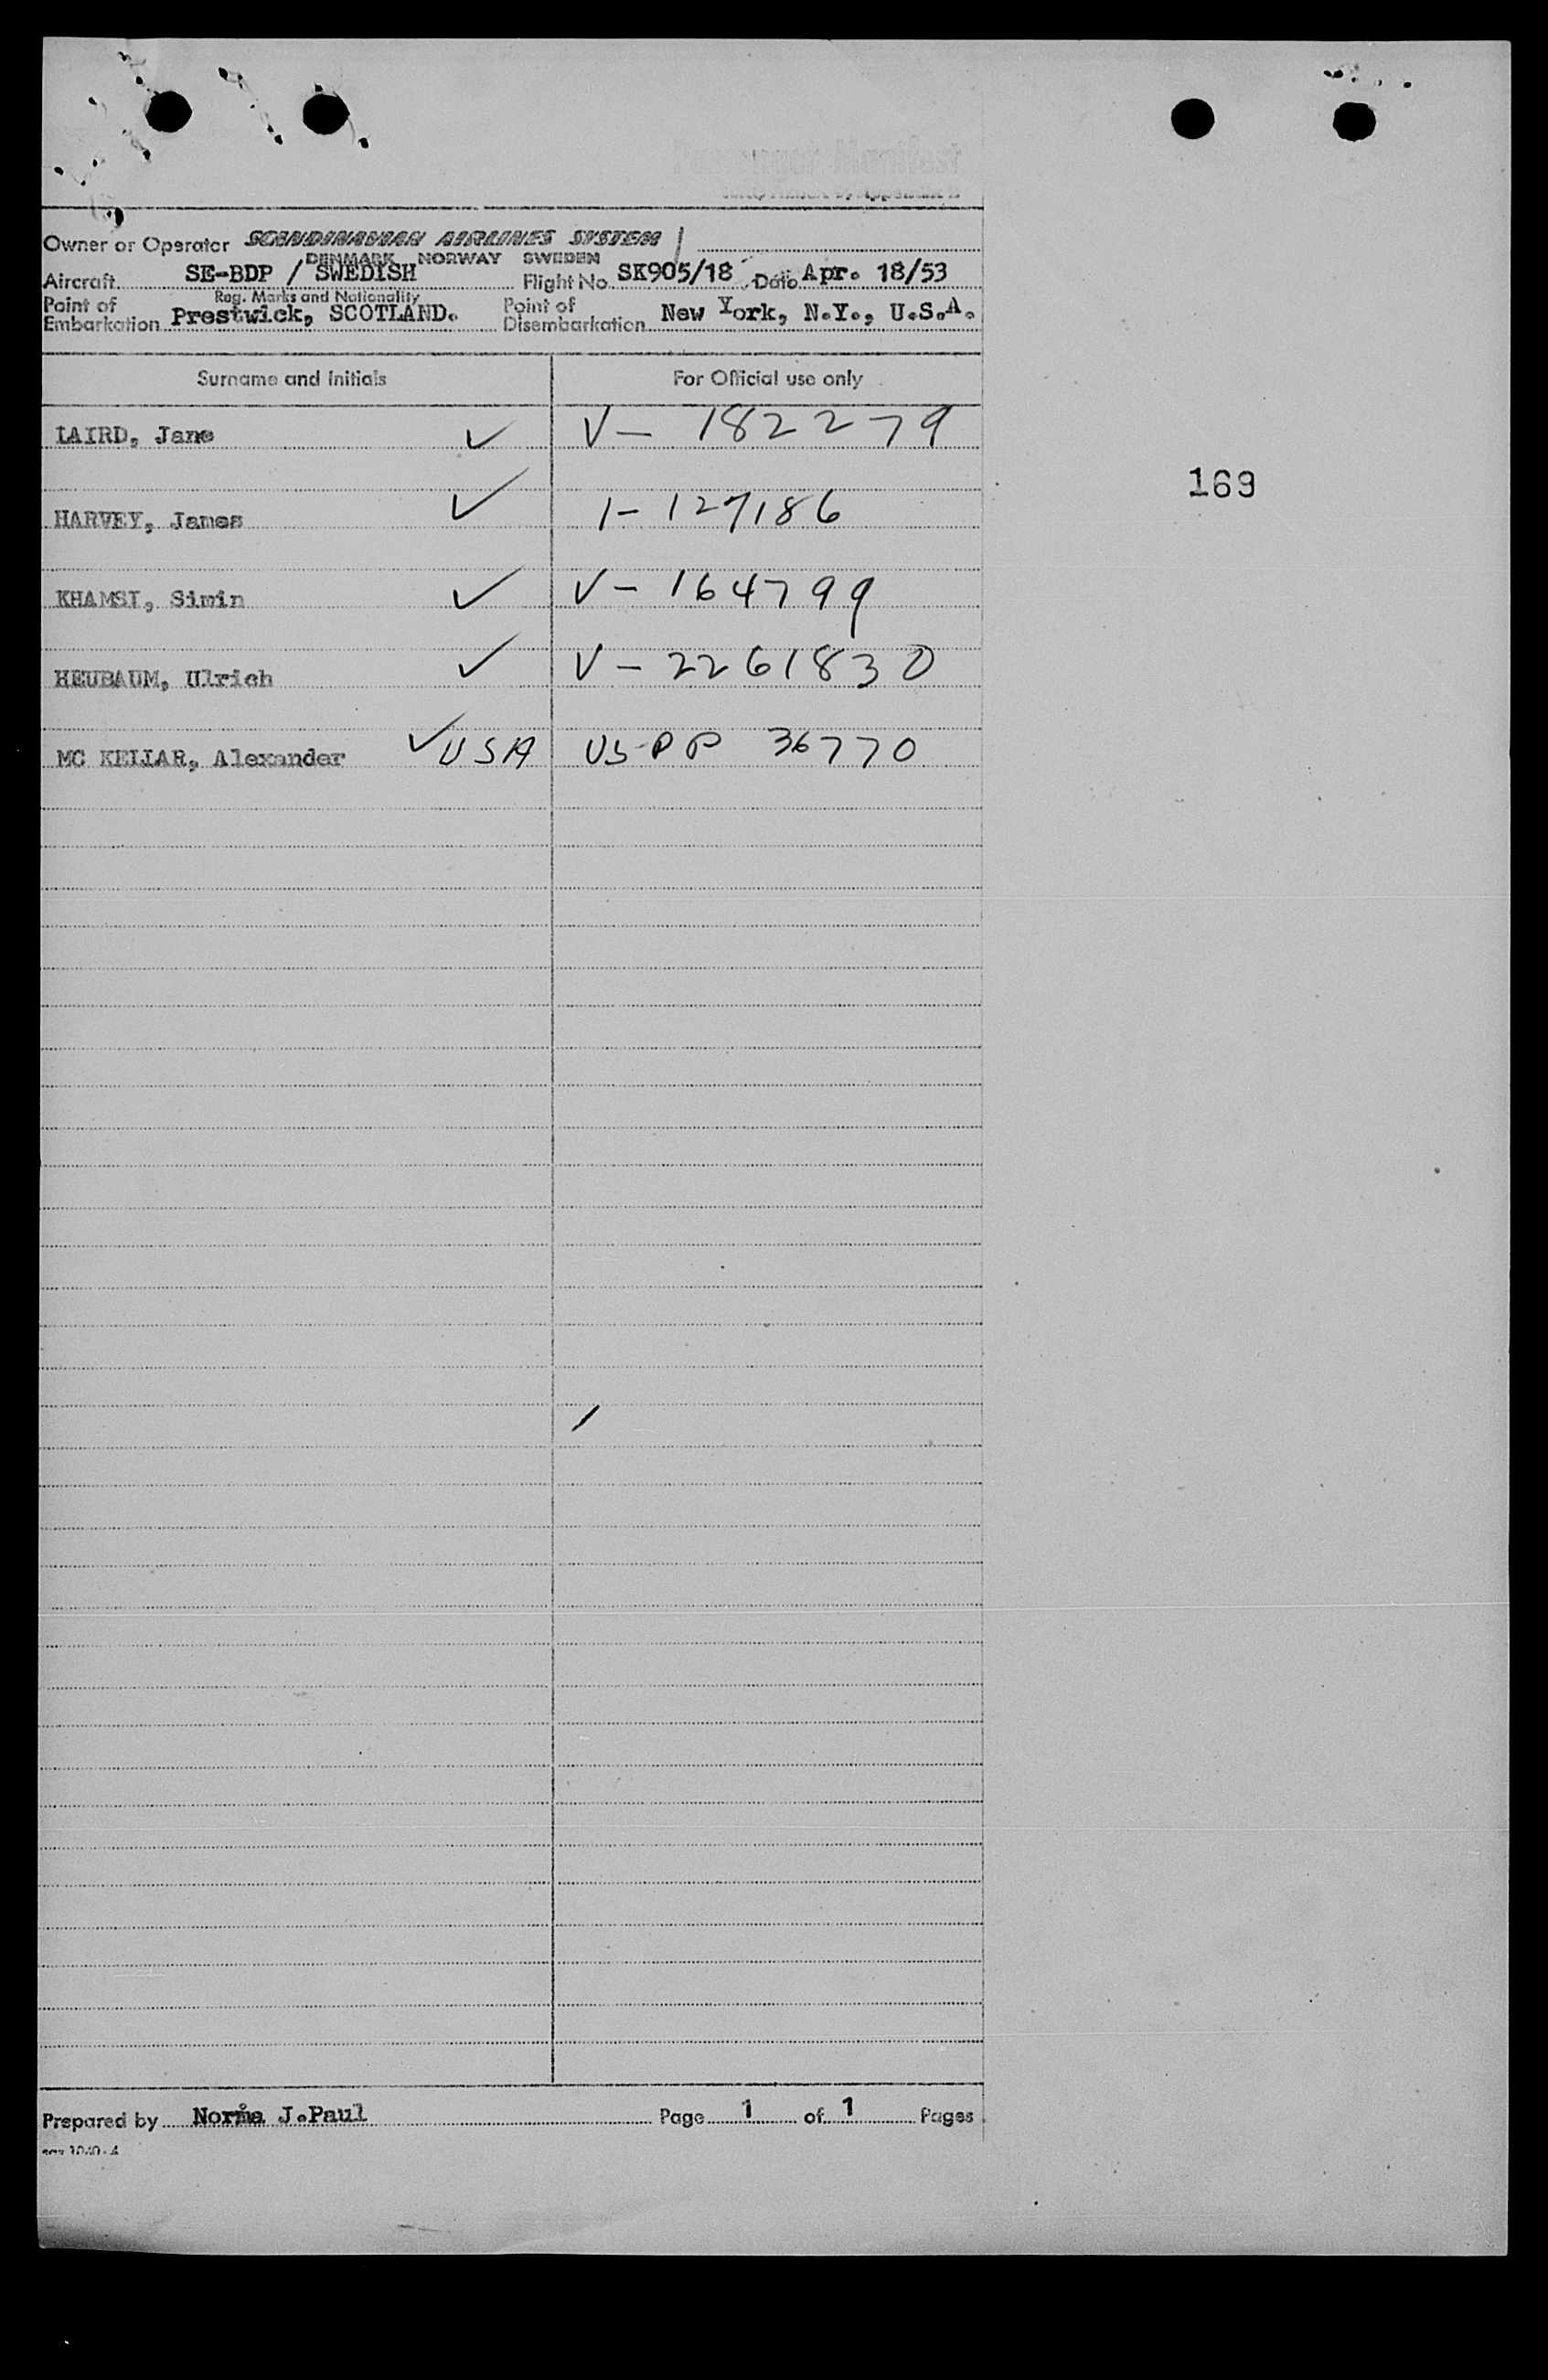 Owner or Operator SCANDINAVIAN AIRLINES SYSTEM
DENMARK NORWAY SWEDEN
Aircraft SE-BDP / SWEDISH Flight No. SK905/18 Date Apr. 18/53
Reg. Marks and Nationality
Point of Embarkation Prestwick, SCOTLAND. Point of Disembarkation New York, N.Y., U.S.A.
Surname and Initials For Official use only
LAIRD, Jane ✓ V- 182279
169
HARVEY, James ✓ 1-127186
KHAMSI, Simin ✓ V-164799
HEUBAUM, Ulrich ✓ V-2261830
MC KELLAR, Alexander ✓ USA US PP 36770
Prepared by Norma J.Paul Page 1 of 1 Pages